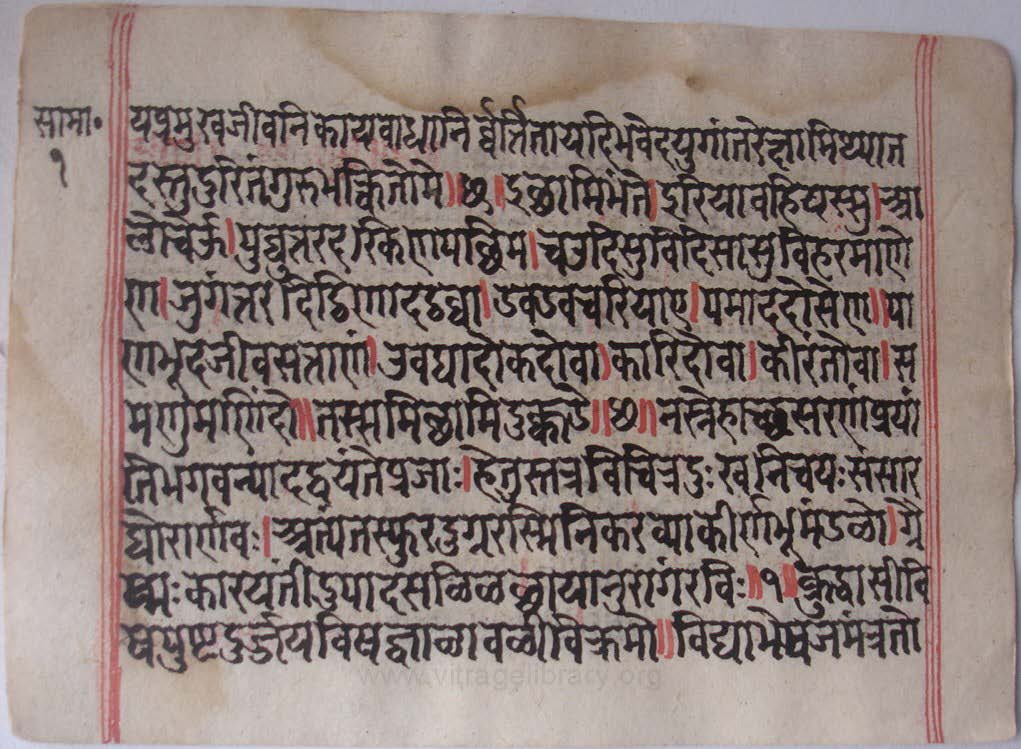 सामा॰
१
यप्रमुखजीवनिकायवाधानिर्व्वर्त्तितायदिभवेदयुगांतरेक्षामिथ्यात
दस्तुदुरितंगुरुभक्तितोमे॥छ॥इछामिभंते।इरियावहियस्स।आ
लोचेऊं।पुव्वुत्तरदरकिणपाछिम।चउदिसुविदिसासुविहरमाणे
ण।जुगंत्तरदिट्ठिणादट्ठव्वा।डवडवचरियाए।पमाददोसेण॥पा
णभूदजीवसत्ताणं।उवघादोकदोवा।कारिदोवा।कीरंतोवा।स
मणुमणिंदो॥तस्समिछामिदुक्कडं॥छ॥नस्नेहाच्छरणंप्रयां
तिभगवन्पादद्वयंतेप्रजाः।हेतुस्तत्रविचित्रदुःखनिचयःसंसार
घोरार्णवः।अत्यंतस्फुरदुग्ररस्मिनिकरव्याकीर्णभूमंडलो।ग्रै
ष्मःकारयतींदुपादसळिळछायानुरागंरविः॥१॥क्रुद्धासीवि
षपुष्टदुर्ज्जयविषज्वाळावळीविक्रमो॥विद्याभेषजमंत्रतो
www.vitragelibrary.org